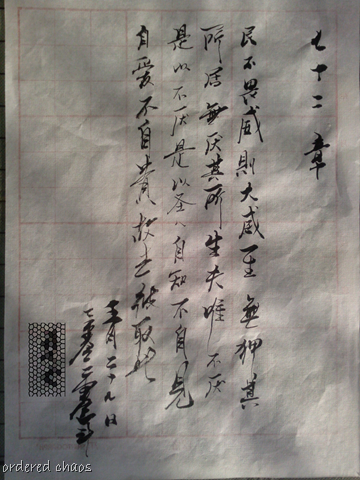 七十二章
民不畏威則大威至無狎其
所居無厌其所生夫唯不厌
是以不厌是以圣人自知不自見
自愛不自貴故去彼取此
月二十九日
ordered chaos